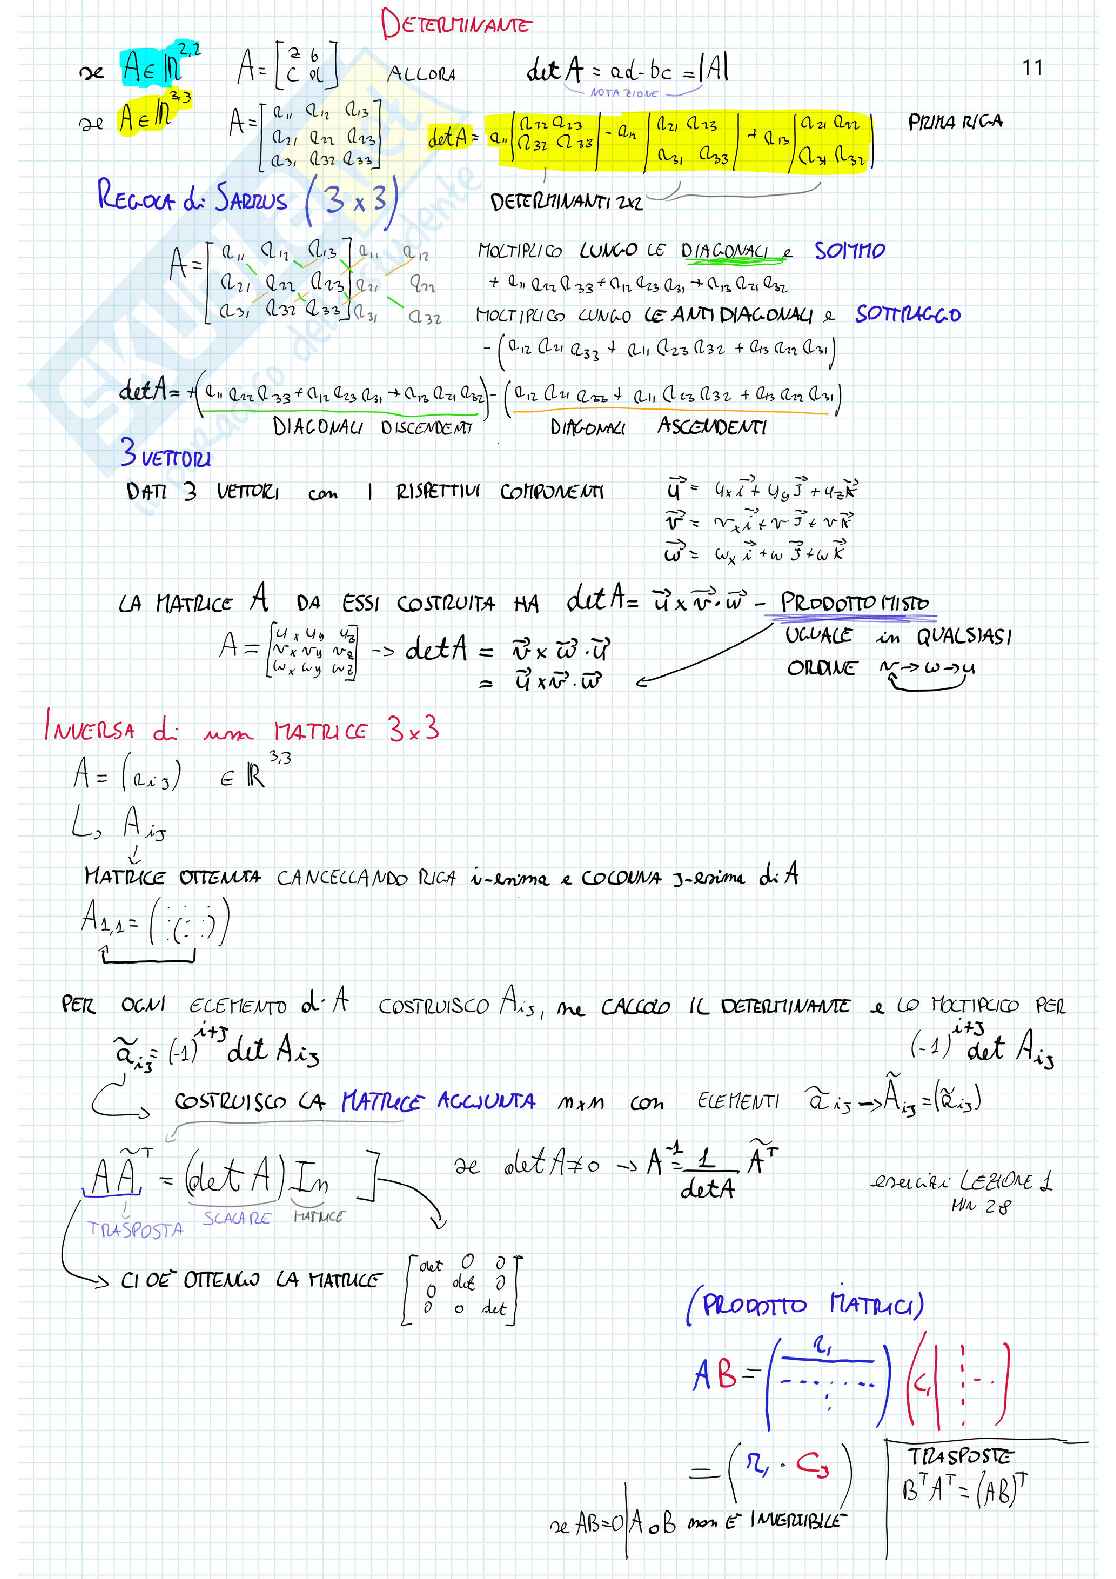 DETERMINANTE
11
se A∈ℝ^2,2 A = [a b; c d] ALLORA det A = ad-bc = |A|
NOTAZIONE
se A∈ℝ^3,3 A = [a11 a12 a13; a21 a22 a23; a31 a32 a33] det A = a11 |a22 a23; a32 a33| - a12 |a21 a23; a31 a33| + a13 |a21 a22; a31 a32| PRIMA RIGA
REGOLA di SARRUS (3×3) DETERMINANTI 2x2
A = [a11 a12 a13; a21 a22 a23; a31 a32 a33] a11 a12; a21 a22; a31 a32
MOLTIPLICO LUNGO LE DIAGONALI e SOMMO
+ a11 a22 a33 + a12 a23 a31 + a13 a21 a32
MOLTIPLICO LUNGO LE ANTIDIAGONALI e SOTTRAGGO
- (a12 a21 a33 + a11 a23 a32 + a13 a22 a31)
det A = +(a11 a22 a33 + a12 a23 a31 + a13 a21 a32) - (a12 a21 a33 + a11 a23 a32 + a13 a22 a31)
DIAGONALI DISCENDENTI DIAGONALI ASCENDENTI
3 VETTORI
DATI 3 VETTORI con I RISPETTIVI COMPONENTI
u = ux i + uy j + uz k
v = vx i + v j + v k
w = wx i + w j + w k
LA MATRICE A DA ESSI COSTRUITA HA det A = u × v · w - PRODOTTO MISTO
A = [ux uy uz; vx vy vz; wx wy wz] -> det A = v × w · u
= u × v · w
UGUALE in QUALSIASI
ORDINE v→w→u
INVERSA di una MATRICE 3×3
A = (aij) ∈ ℝ^3,3
↳ Aij
MATRICE OTTENUTA CANCELLANDO RIGA i-esima e COLONNA j-esima di A
A1,1 =
PER OGNI ELEMENTO di A COSTRUISCO Aij, ne CALCOLO IL DETERMINANTE e LO MOLTIPLICO PER
ãij = (-1)^i+j det Aij (-1)^i+j det Aij
COSTRUISCO LA MATRICE AGGIUNTA nxn con ELEMENTI ãij → Ãij = (ãij)
AÃ^T = (det A) In ] se det A ≠ 0 → A^-1 = 1/det A Ã^T
TRASPOSTA SCALARE MATRICE
esercizi LEZIONE 1
MIN 28
CIOE' OTTENGO LA MATRICE [det 0 0; 0 det 0; 0 0 det]
(PRODOTTO MATRICI)
AB = ( r1 ) ( c1 )
= (ri · cj)
TRASPOSTE
B^T A^T = (AB)^T
se AB=0 | A o B non E' INVERTIBILE